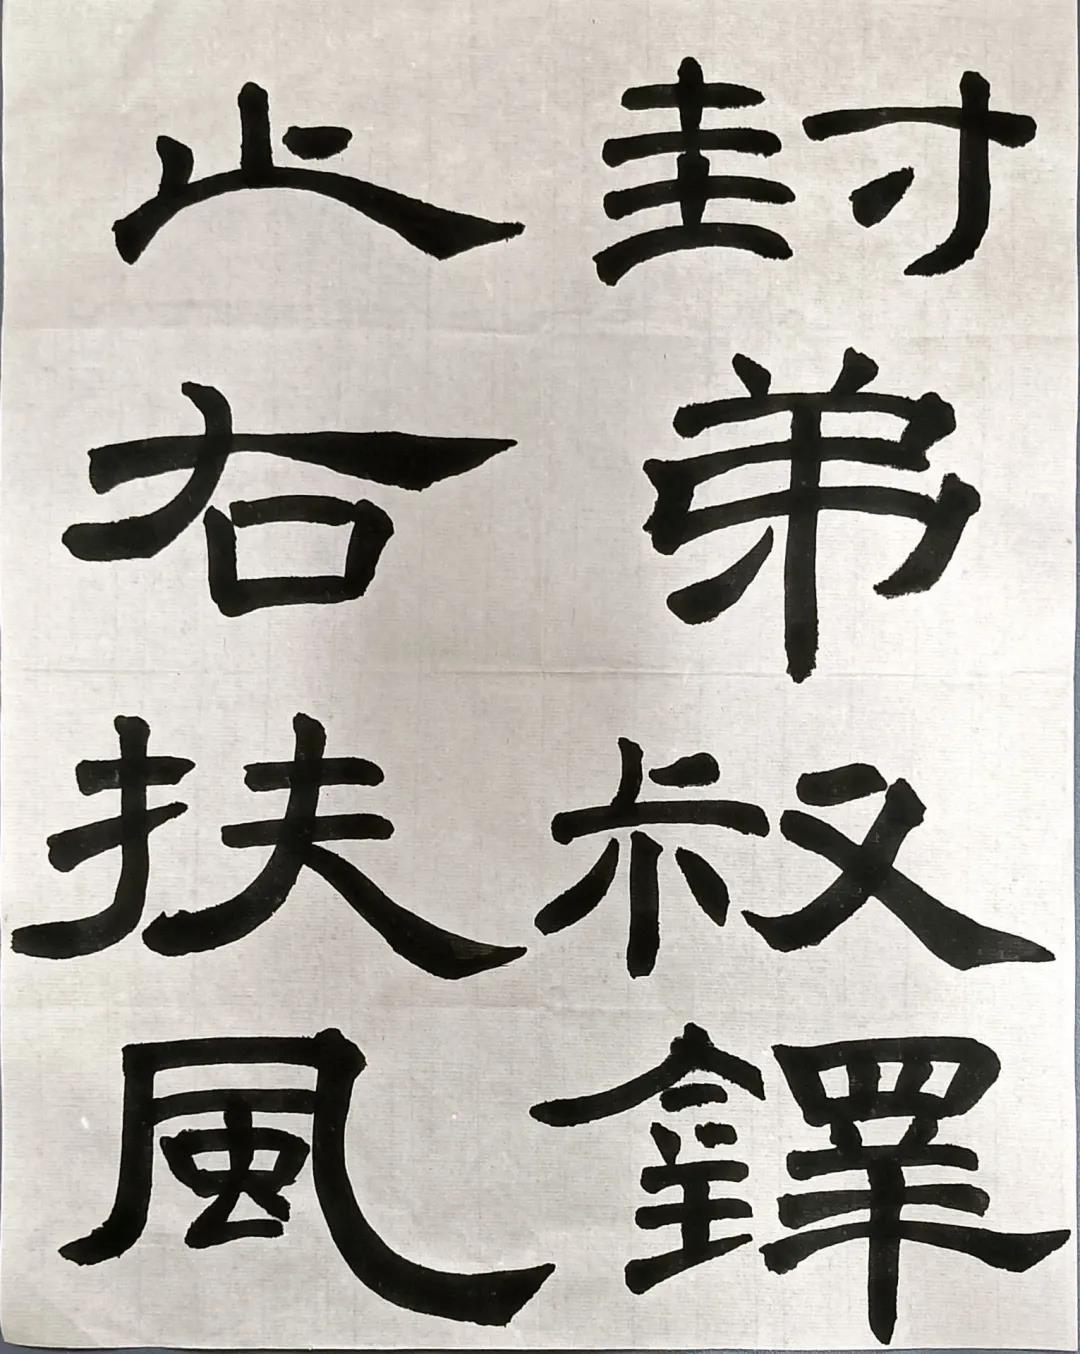 封弟叔鐸
止右扶風